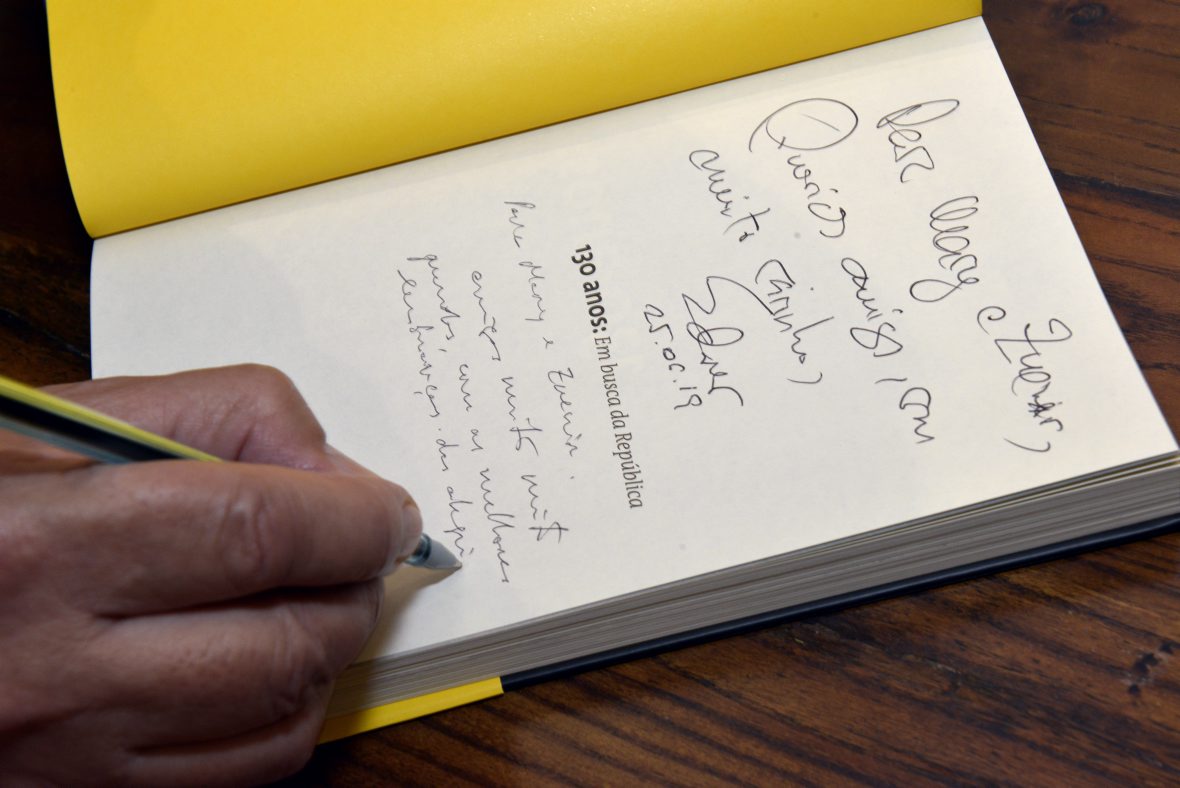 Para Mary e Zuenir,
Queridos amigos, com
muito carinho,
Edner
25.06.19
130 anos: Em busca da República
Para Mary e Zuenir.
amigos muito muito
queridos, com as melhores
lembranças. das alegri